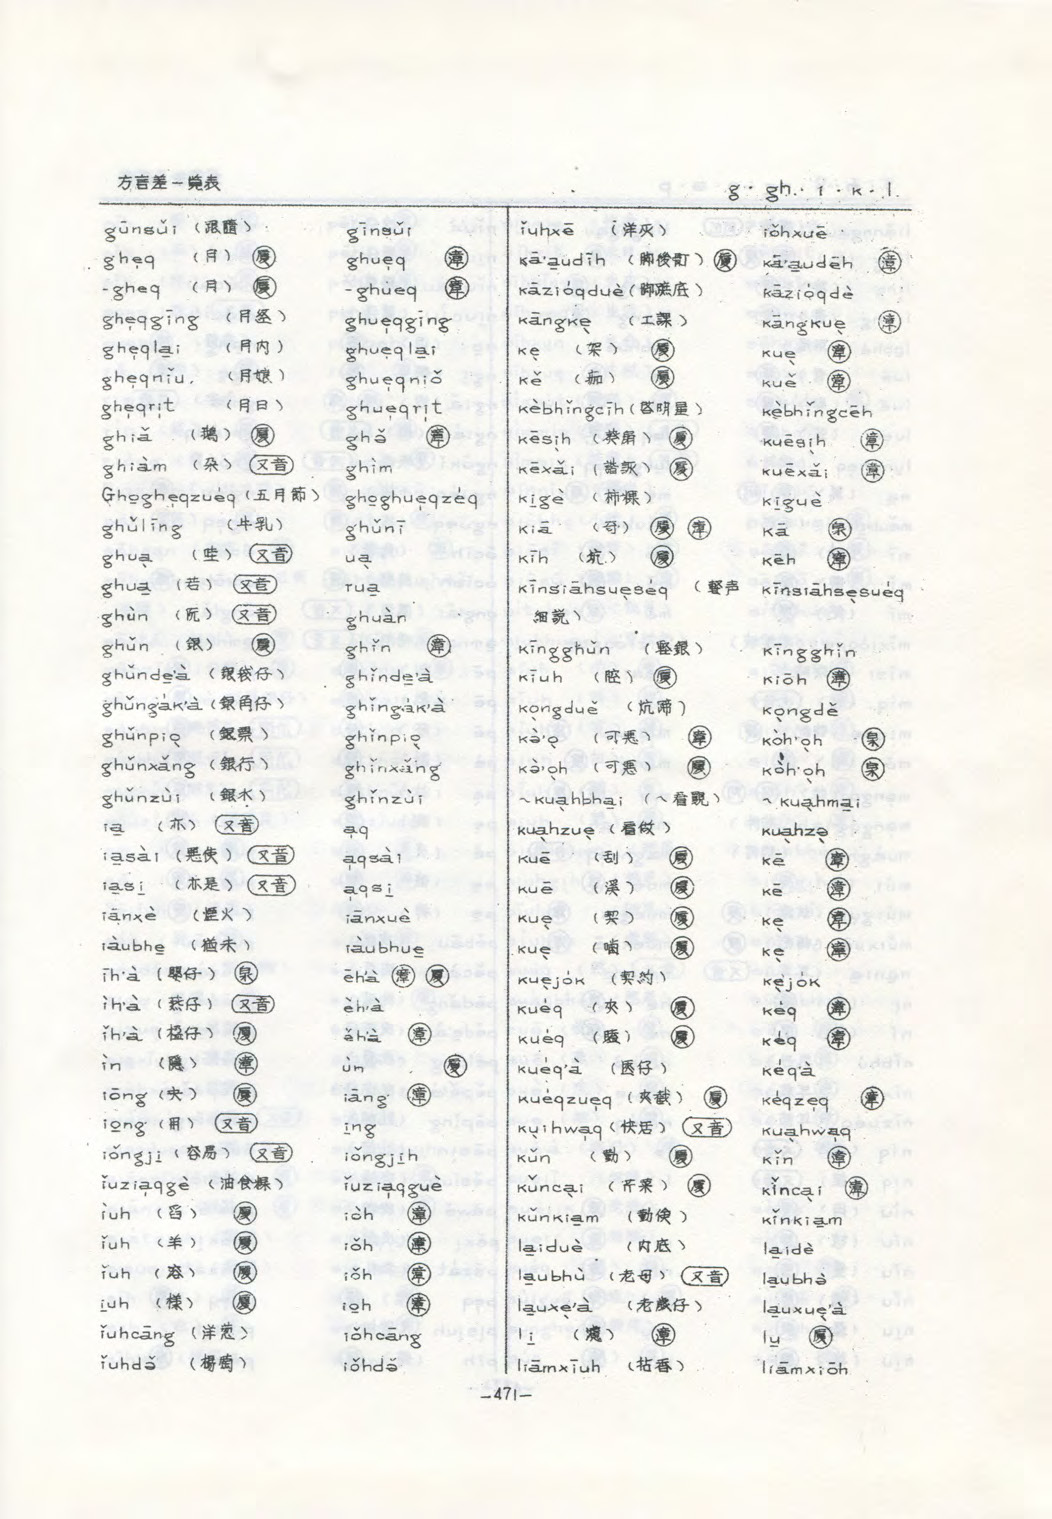 方言差一覽表
g · gh · i · k · l.
gūnsǔi (跟隨) gīnsǔi
ghe̱q (月) 厦 ghue̱q 漳
-ghe̱q (月) 厦 -ghue̱q 漳
ghe̱qgīng (月經) ghue̱qgīng
ghe̱qla̱i (月内) ghue̱qla̱i
ghe̱qniǔ (月娘) ghue̱qniǒ
ghe̱qri̱t (月日) ghue̱qri̱t
ghiǎ (鵝) 厦
ghiàm (朵) 又音 ghìm
Gho̱ghe̱qzuéq (五月節) gho̱ghue̱qzéq
ghǔlīng (牛乳) ghǔnī
ghua̱ (哇) 又音 ua̱
ghua̱ (若) 又音 rua̱
ghùn (阮) 又音 ghuàn
ghǔn (銀) 厦 ghǐn 漳
ghǔnde̱'à (銀袋仔) ghǐnde̱'à
ghǔngák'à (銀角仔) ghǐngák'à
ghǔnpiə̱ (銀票) ghǐnpiə̱
ghǔnxǎng (銀行) ghǐnxǎng
ghǔnzùi (銀水) ghǐnzùi
ia̱ (亦) 又音 a̱q
ia̱sài (惡使) 又音 a̱qsài
ia̱si̱ (亦是) 又音 a̱qsi̱
iānxè (煙火) iānxuè
iàubhe̱ (猶未) iàubhue̱
īh'à (嬰仔) 泉 ēhà 漳 厦
ǐh'à (楹仔) 厦 ěhà 漳
ìn (隱) 漳 ùn 厦
iōng (央) 厦 iāng 漳
io̱ng (用) 又音 i̱ng
iǒngji̱ (容易) 又音 iǒngji̱h
ǐuzia̱qgè (油食粿) ǐuzia̱qguè
ìuh (舀) 厦 iòh 漳
ǐuh (羊) 厦 iǒh 漳
ǐuh (溶) 厦 iǒh 漳
i̱uh (樣) 厦 io̱h 漳
ǐuhcāng (洋葱) iǒhcāng
ǐuhdə̌ (楊萄) iǒhdə̌
ǐuhxē (洋灰) iǒhxuē
kā'a̱udīh (脚後釘) 厦 kā'a̱udēh 漳
kāziódquè (脚蹠底) kāzióqdè
kāngke̱ (工課) kāngkue̱ 漳
ke̱ (架) 厦 kue̱ 漳
kě (茄) 厦 kuě 漳
kèbhǐngcīh (啓明星) kèbhǐngcēh
kēxǎi 厦 kuēxǎi 漳
ki̱gè (柿粿) ki̱guè
kiā (奇) 厦 漳 kā 泉
kīh (坑) 厦 kēh 漳
kīnsiāhsue̱séq (輕声 kīnsiāhse̱suéq
細說)
kīngghǔn (輕銀) kīngghǐn
kīuh (腔) 厦 kiōh 漳
ko̱ngduě (炕蹄) ko̱ngdě
kə̀'o̱ (可惡) 漳 kòh'o̱h 泉
kə̀'o̱h (可惡) 厦 kòh'o̱h 泉
~kua̱hbha̱i (~看覓) ~kua̱hma̱i
kua̱hzue̱ (看做) kua̱hzə̱
kuē (刮) 厦 kē 漳
kuē (溪) 厦 kē 漳
kue̱ (契) 厦 ke̱ 漳
kue̱ (嚙) 厦 ke̱ 漳
kue̱jók (契約) ke̱jók
kuéq (夾) 厦 kéq 漳
kuéq 厦 kéq 漳
kuéq'à kéq'à
kuéqzue̱q (夾截) 厦 kéqze̱q 漳
ku̱ihwa̱q (快活) 又音 kua̱hwa̱q
kǔn (勤) 厦 kǐn 漳
kǔnca̱i (芹菜) 厦 kǐnca̱i 漳
kǔnkia̱m (勤儉) kǐnkia̱m
la̱iduè (内底) la̱idè
la̱ubhù (老母) 又音 la̱ubhə̀
la̱uxe̱'à (老歲仔) la̱uxue̱'à
li̱ (濾) 漳 lu̱ 厦
liāmxīuh (拈香) liāmxiōh
—471—